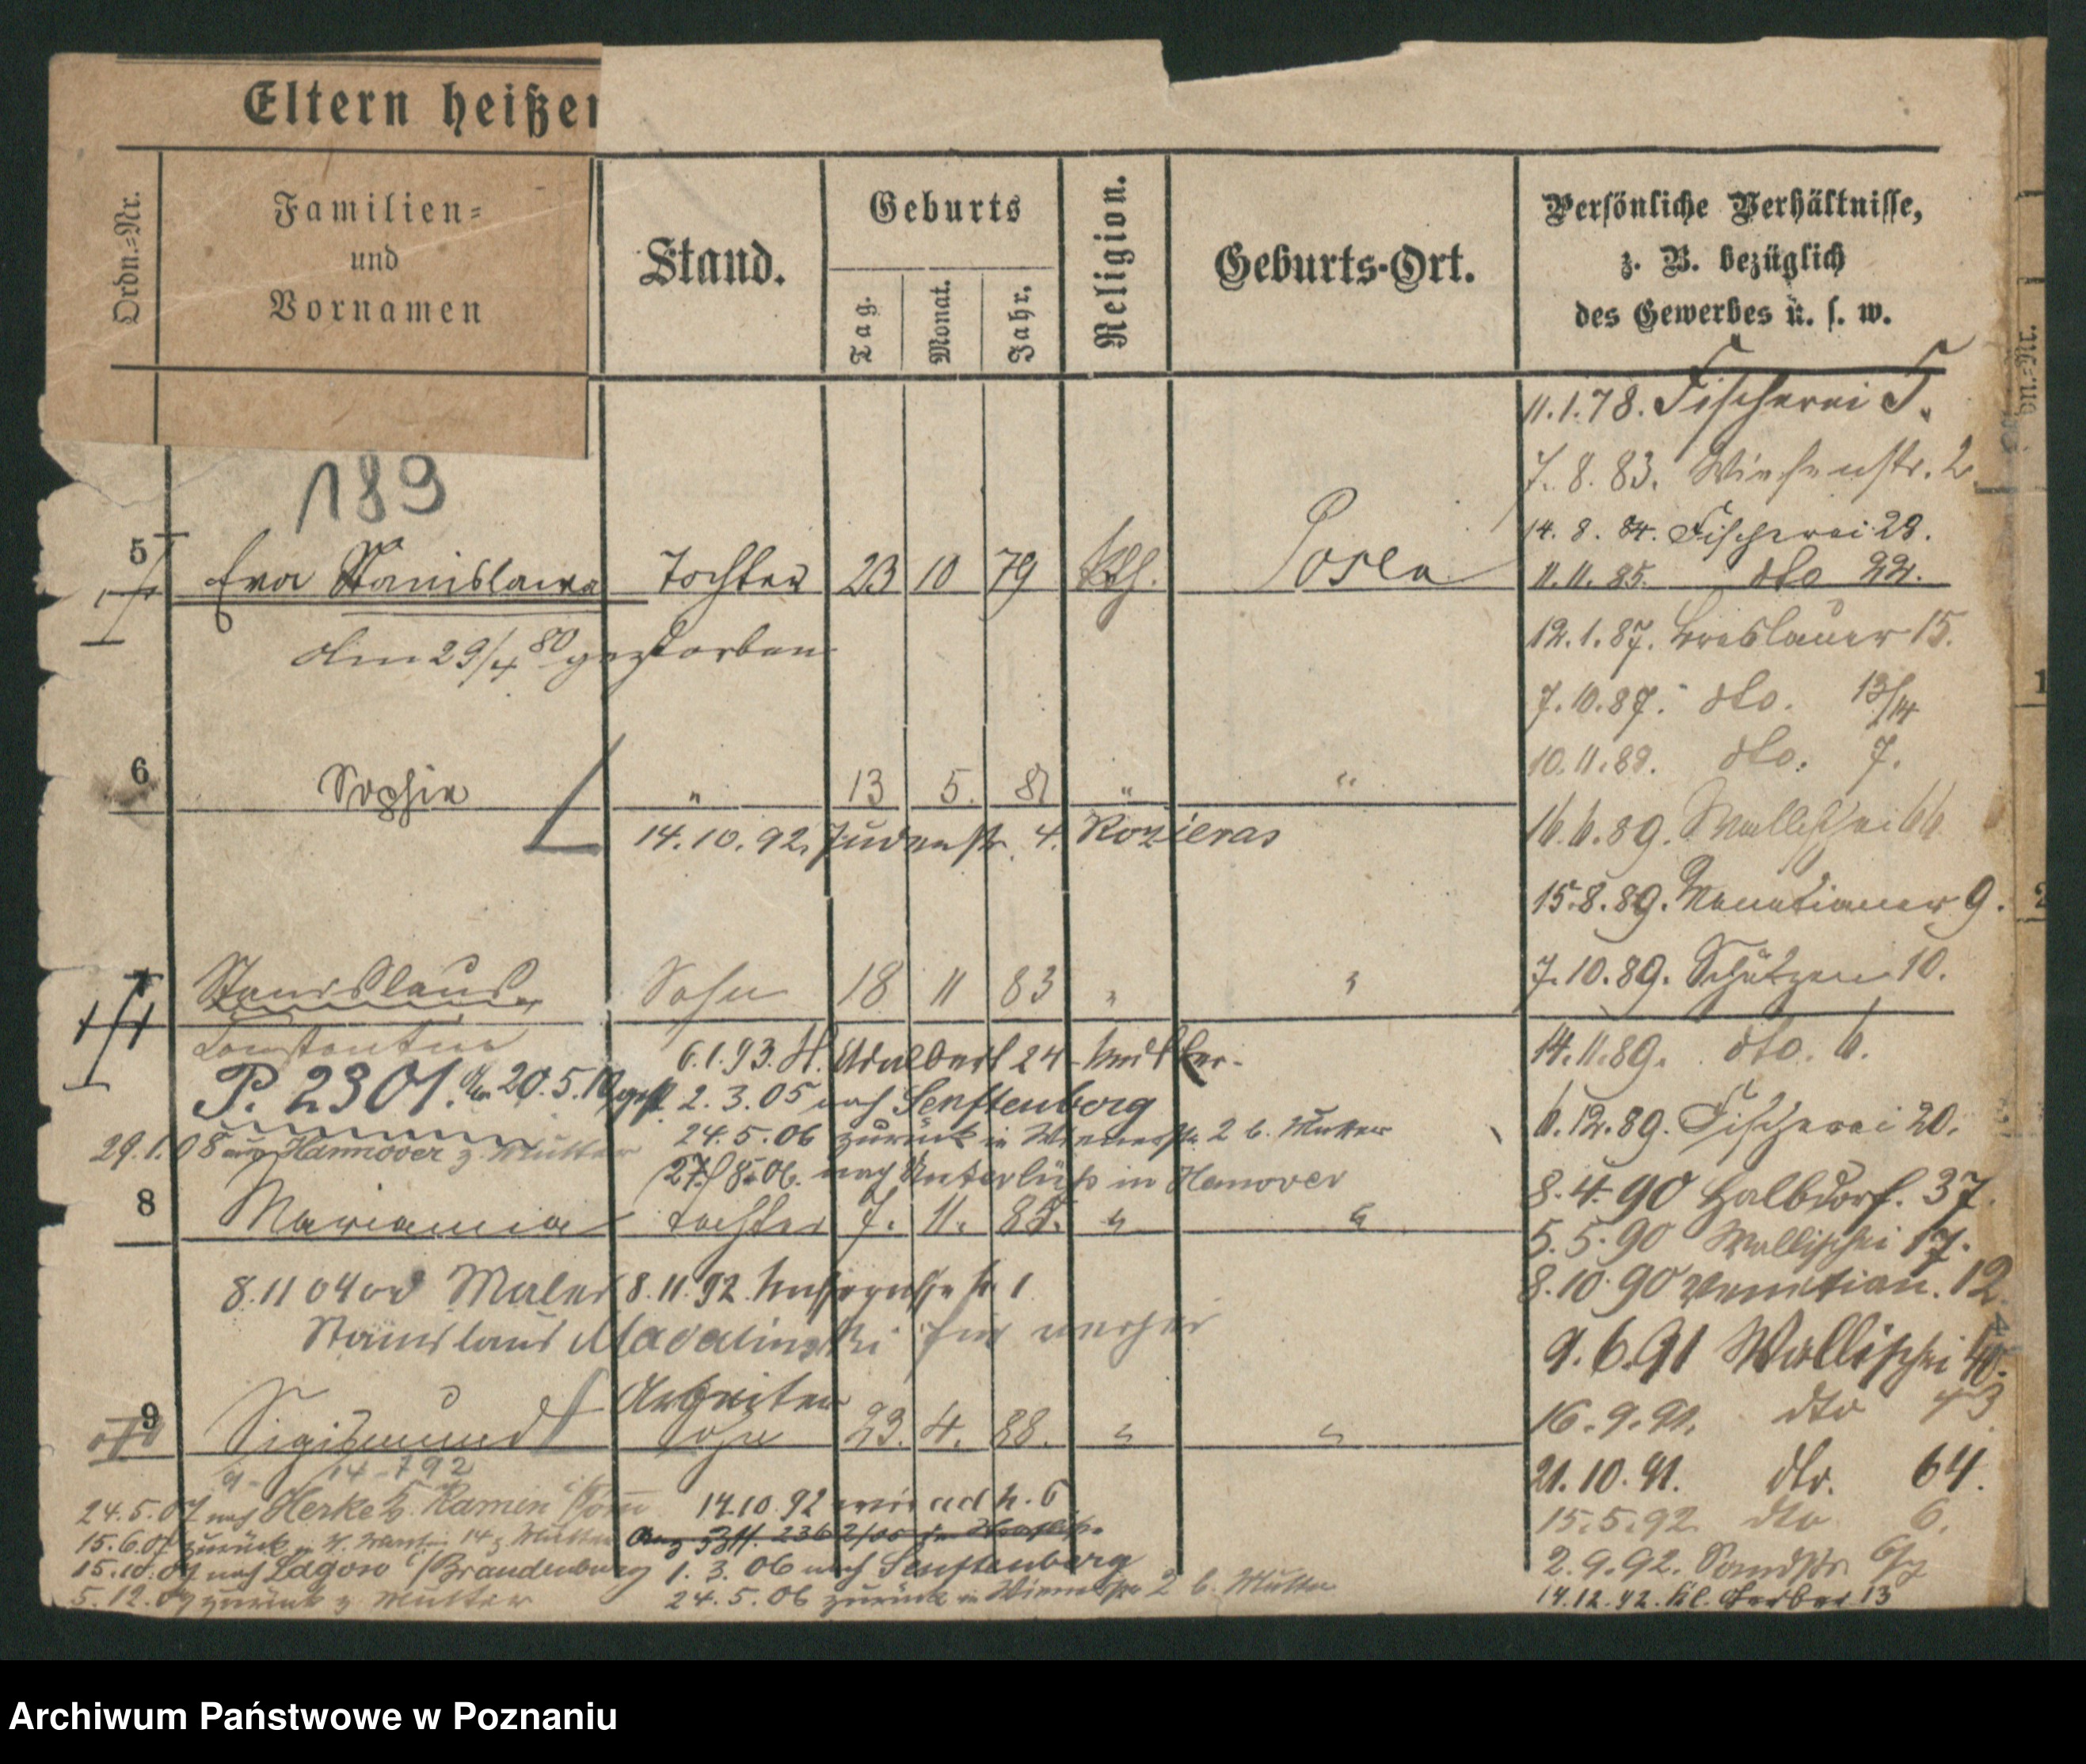 Eltern heißen
Ordn.=Nr.
Familien=
und
Vornamen
Stand.
Geburts
Tag.
Monat.
Jahr.
Religion.
Geburts-Ort.
Persönliche Verhältnisse,
z. B. bezüglich
des Gewerbes u. s. w.
11.1.78. Fischerei 5.
7.8.83. Wiesenstr. 2
189
14.8.84. Fischerei 29.
5 Eva Stanislawa Tochter 23 10 79 kth. Posen
11.11.85. dto 22.
am 29/4 80 gestorben
12.1.87. Breslauer 15.
7.10.87. dto. 13/14
10.11.88. dto. 7.
6 Sophie " 13 5. 81 " "
14.10.92. Judenstr. 4.
16.6.89. Wallischei 66
15.8.89. Venetianer 9.
7.10.89. Schützen 10.
7 Stanislaus Sohn 18 11 83 " "
Constantin
6.1.93. St. Adalbert 24
14.11.89. dto. 6.
P. 2301. 20.5.10
2.3.05 nach Senftenberg
6.12.89. Fischerei 20.
24.5.06 zurück in Wienerstr. 2 b. Mutter
29.1.08 aus Hannover z. Mutter
27/8.06. nach Unterlüß in Hanover
8.4.90 Halbdorf. 37.
8 Marianna Tochter 7. 11. 85. " "
5.5.90 Wallischei 17.
8.11 04 Maler 8.11.92.
8.10.90 Venetian. 12.
Stanislaus Madalinski
9.6.91 Wallischei
Arbeiter
16.9.91. dto 43
9 Sigismund Sohn 23. 4. 88. " "
21.10.91. dto. 64.
14.10.92
15.5.92 dto 6.
24.5.07 nach
15.6.07 zurück
2.9.92. Sandstr.
15.10.07 nach Lagow Brandenburg
1.3.06 nach Senftenberg
5.12.07 zurück z Mutter
24.5.06 zurück in Wienerstr 2 b. Mutter
14.12.92. Kl. Gerber 13
Archiwum Państwowe w Poznaniu